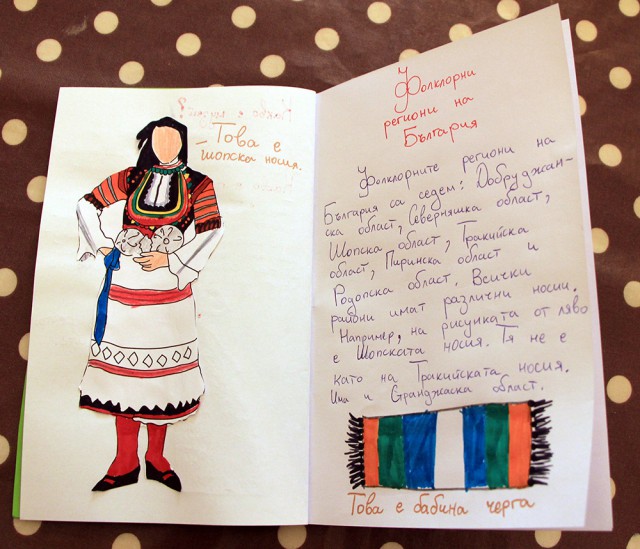 Това е
шопска носия.
Фолклорни
региони на
България
Фолклорните региони на
България са седем: Добруджан-
ска област, Северняшка област,
Шопска област, Тракийска
област, Пиринска област и
Родопска област. Всички
райони имат различни носии.
Например, на рисунката от ляво
е Шопската носия. Тя не е
като на Тракийската носия.
Има и Странджаска област.
Това е бабина черга